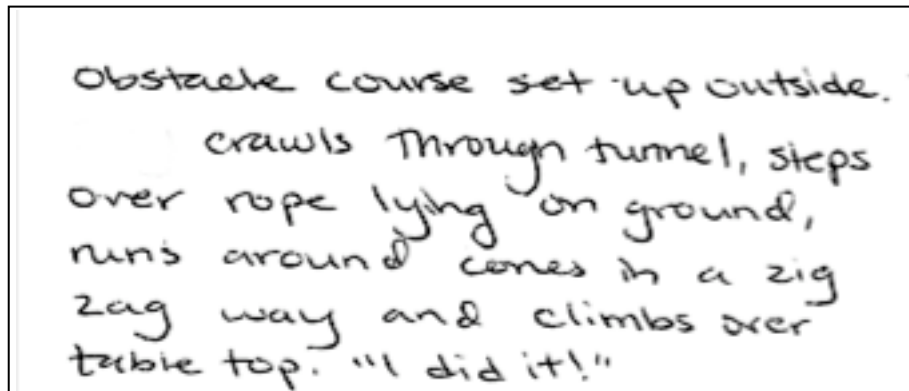 Obstacle course set up outside.
crawls through tunnel, steps
over rope lying on ground,
runs around cones in a zig
zag way and climbs over
table top. "I did it!"